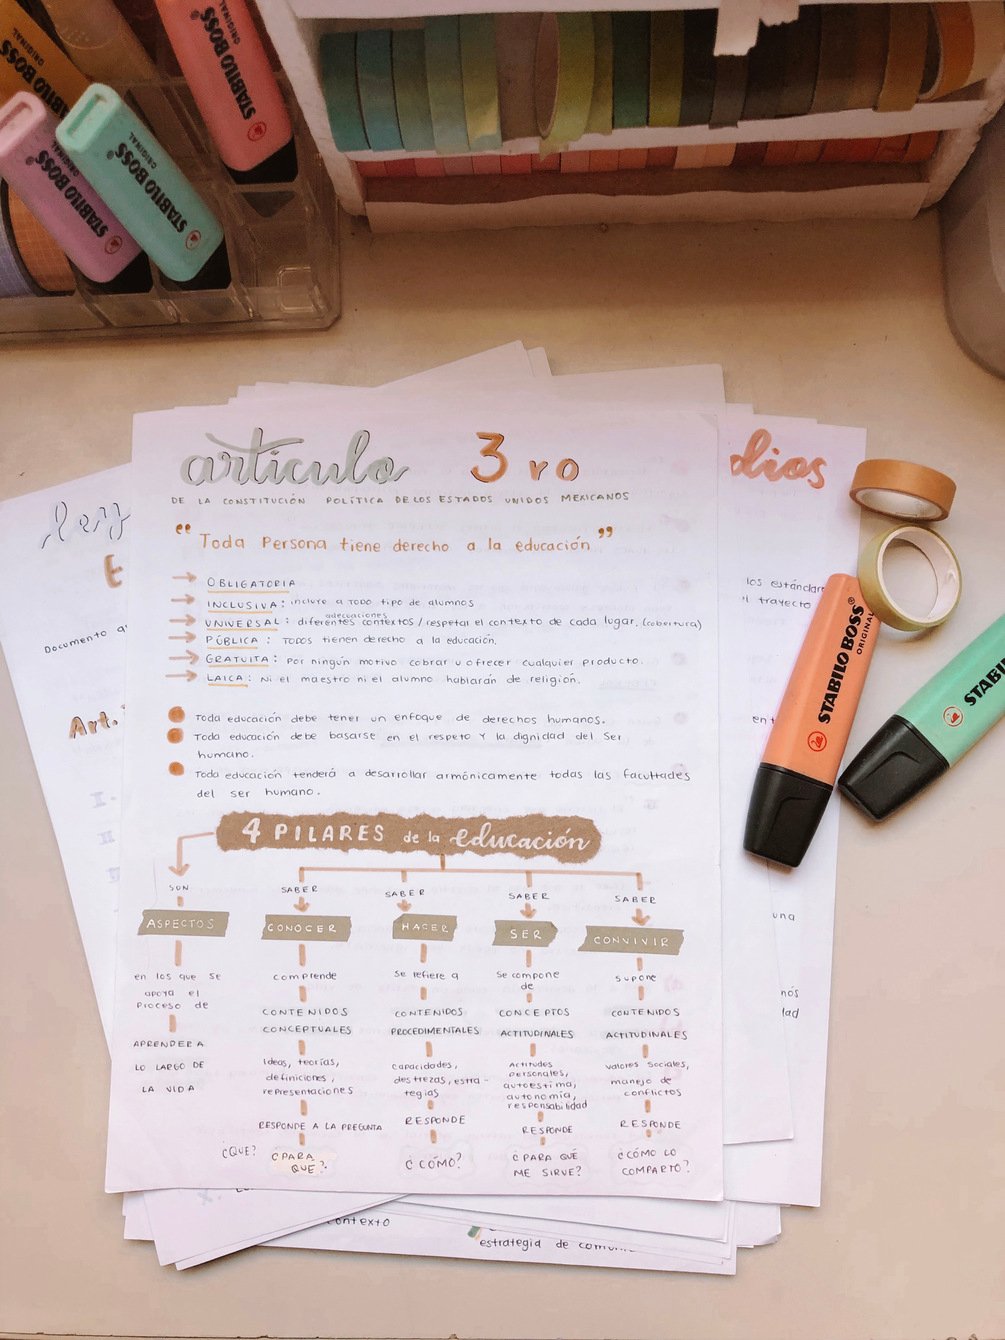 STABILO BOSS
ORIGINAL
STABILO BOSS
ORIGINAL
STABILO BOSS
STABILO BOSS
ORIGINAL
artículo 3ro
DE LA CONSTITUCIÓN POLÍTICA DE LOS ESTADOS UNIDOS MEXICANOS
"Toda Persona tiene derecho a la educación"
→ OBLIGATORIA
→ INCLUSIVA: incluye a TODO tipo de alumnos
adecuaciones
→ UNIVERSAL: diferentes contextos / respetar el contexto de cada lugar. (cobertura)
→ PÚBLICA: TODOS tienen derecho a la educación.
→ GRATUITA: Por ningún motivo cobrar u ofrecer cualquier producto.
→ LAICA: Ni el maestro ni el alumno hablarán de religión.
Toda educación debe tener un enfoque de derechos humanos.
Toda educación debe basarse en el respeto y la dignidad del Ser
humano.
Toda educación tenderá a desarrollar armónicamente todas las facultades
del ser humano.
4 PILARES de la educación
SON
ASPECTOS
en los que se
apoya el
Proceso de
APRENDER A
LO LARGO DE
LA VIDA
SABER
CONOCER
comprende
CONTENIDOS
CONCEPTUALES
Ideas, teorías,
definiciones,
representaciones
RESPONDE A LA PREGUNTA
¿QUE? ¿PARA
QUÉ?
SABER
HACER
Se refiere a
CONTENIDOS
PROCEDIMENTALES
capacidades,
destrezas, estra-
tegias
RESPONDE
¿CÓMO?
SABER
SER
Se compone
de
CONCEPTOS
ACTITUDINALES
Actitudes
personales,
autoestima,
autonomía,
responsabilidad
RESPONDE
¿PARA QUÉ
ME SIRVE?
SABER
CONVIVIR
supone
CONTENIDOS
ACTITUDINALES
valores sociales,
manejo de
conflictos
RESPONDE
¿CÓMO LO
COMPARTO?
Documento q
Art.
I.
II
dios
los estándar
el trayecto
en t
una
nós
dad
STABILO BOSS
ORIGINAL
STABILO B
contexto
estrategia de comuni